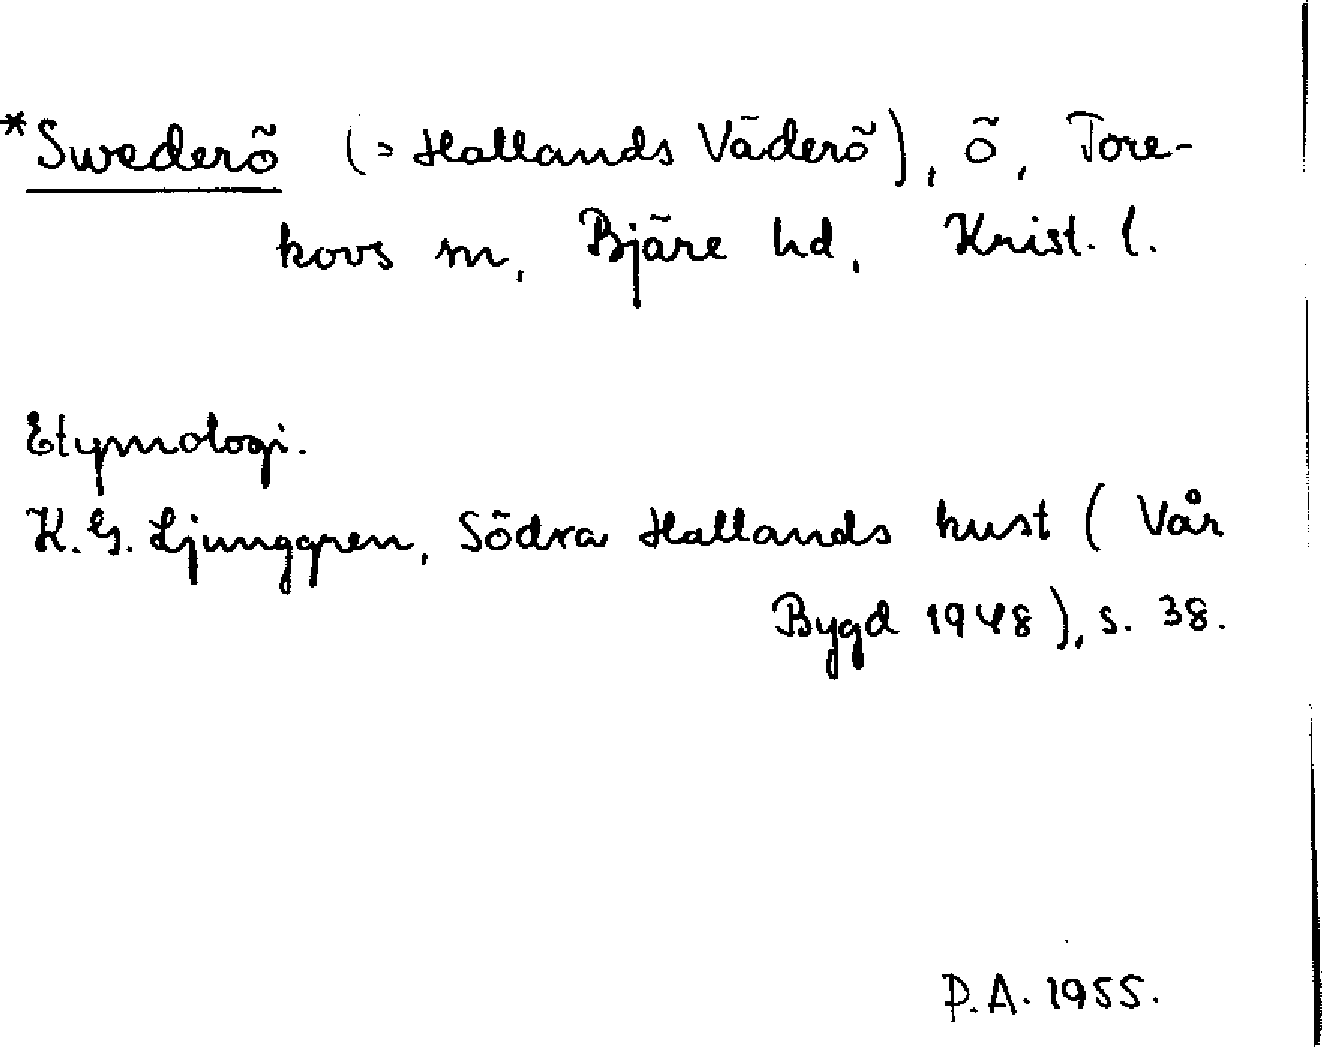 *Swederö (= Hallands Väderö), ö, Tore-
kovs sn, Bjäre hd, Krist. l.
Etymologi.
K. G. Ljunggren, Södra Hallands kust (Vår
Bygd 1948), s. 38.
P.A. 1955.